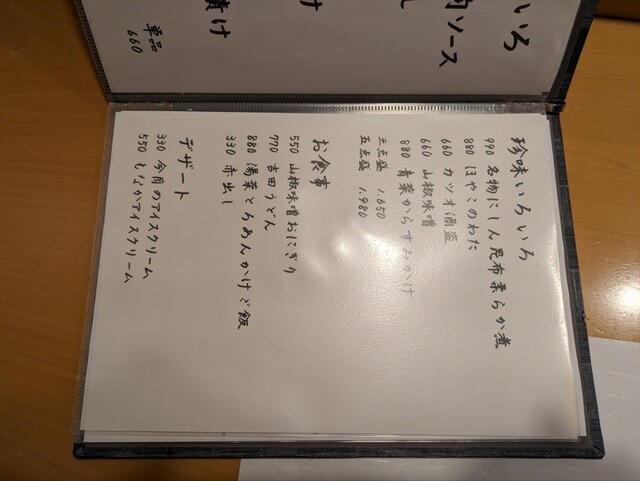 いろ
肉ソース
し
け
漬け
単品
660
珍味いろいろ
990 名物にしん昆布柔らか煮
880 ほやこのわた
660 カツオ酒盗
660 山椒味噌
880 青菜からすみかけ
三点盛 1.650
五点盛 1.980
お食事
550 山椒味噌おにぎり
770 吉田うどん
880 湯葉とろあんかけご飯
330 赤出し
デザート
330 今月のアイスクリーム
550 もなかアイスクリーム